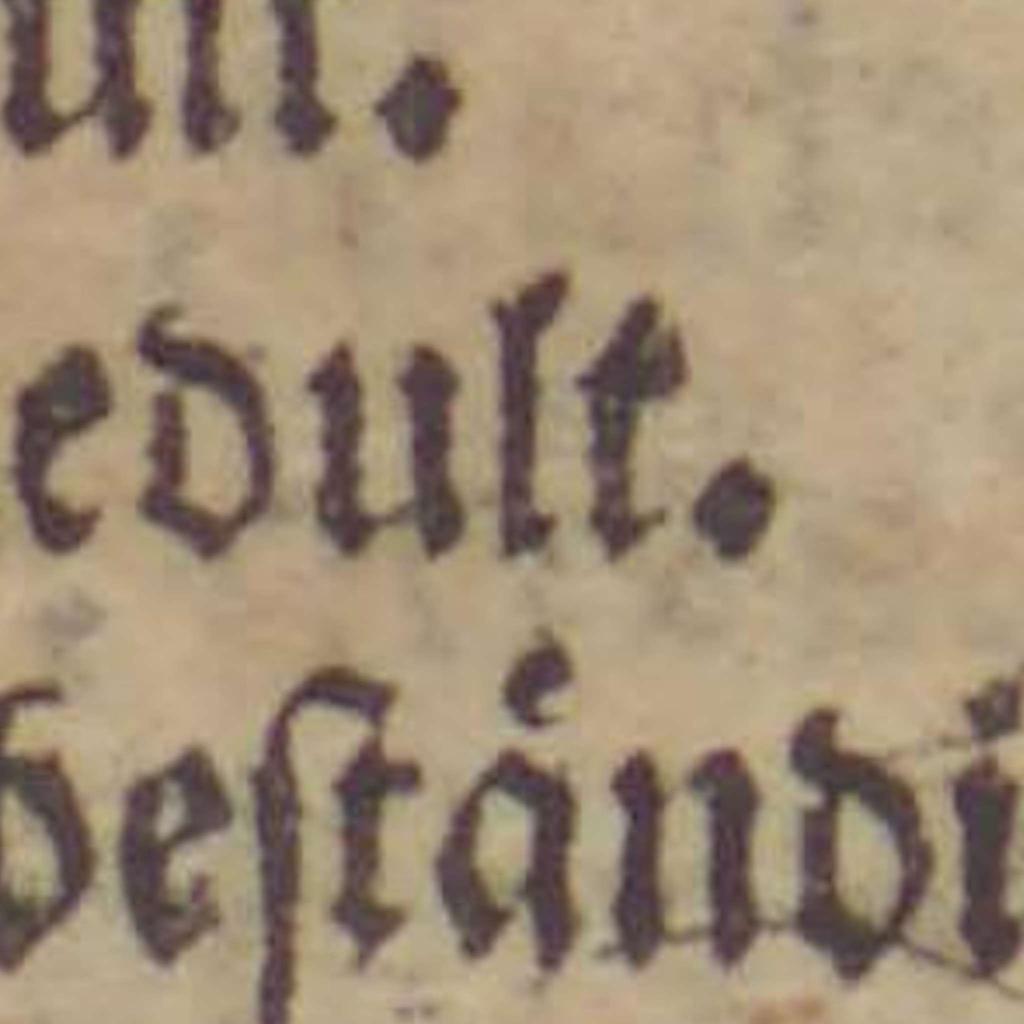 edult.
beständi